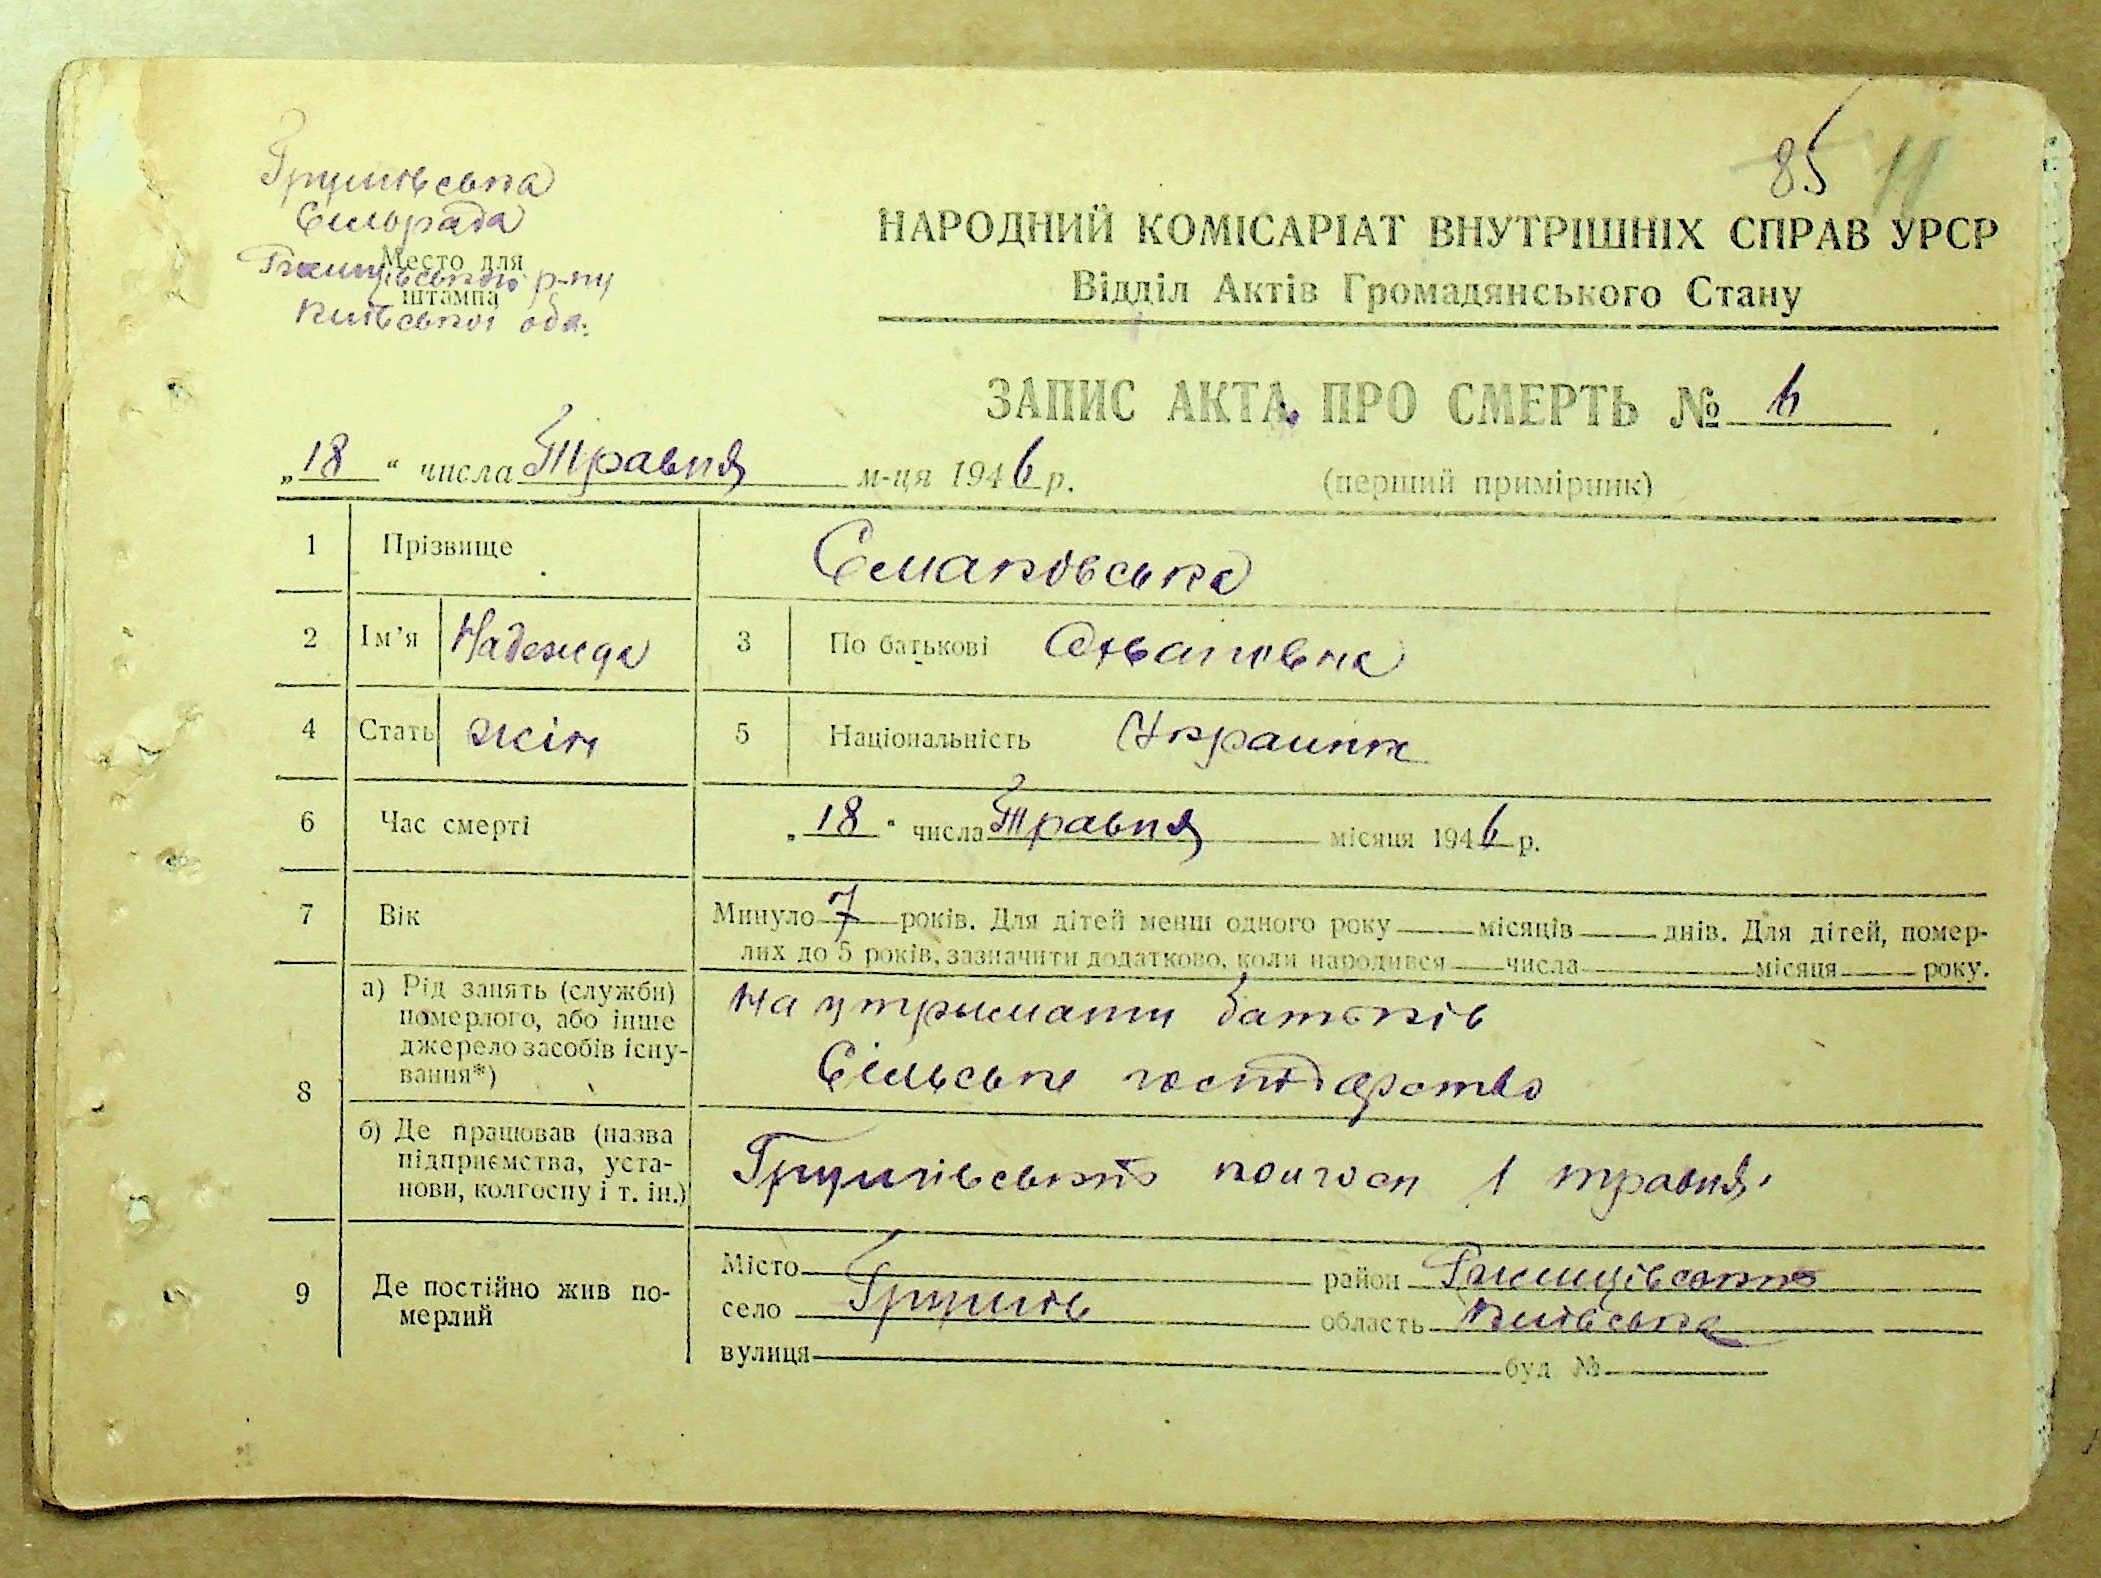 85 11
Грушівська
Сільрада
Место для
Ржищівського р-ну
штампа
Київської обл.
НАРОДНИЙ КОМІСАРІАТ ВНУТРІШНІХ СПРАВ УРСР
Відділ Актів Громадянського Стану
ЗАПИС АКТА ПРО СМЕРТЬ № 6
„18“ числа Травня м-ця 1946 р. (перший примірник)
1 Прізвище Смаковська
2 Ім’я Надежда 3 По батькові
4 Стать жін 5 Національність Украинк
6 Час смерті „18“ числа Травня місяця 1946 р.
7 Вік Минуло 7 років. Для дітей менш одного року місяців днів. Для дітей, помер-
лих до 5 років, зазначити додатково, коли народився числа місяця року.
8 а) Рід занять (служби) померлого, або інше джерело засобів існу- вання*) На утриманни батьків
Сільське господарство
б) Де працював (назва підприємства, уста- нови, колгоспу і т. ін.) Грушівський колгосп 1 травня
9 Де постійно жив по- мерлий Місто район Ржищівський
село Грушів область Київська
вулиця буд №